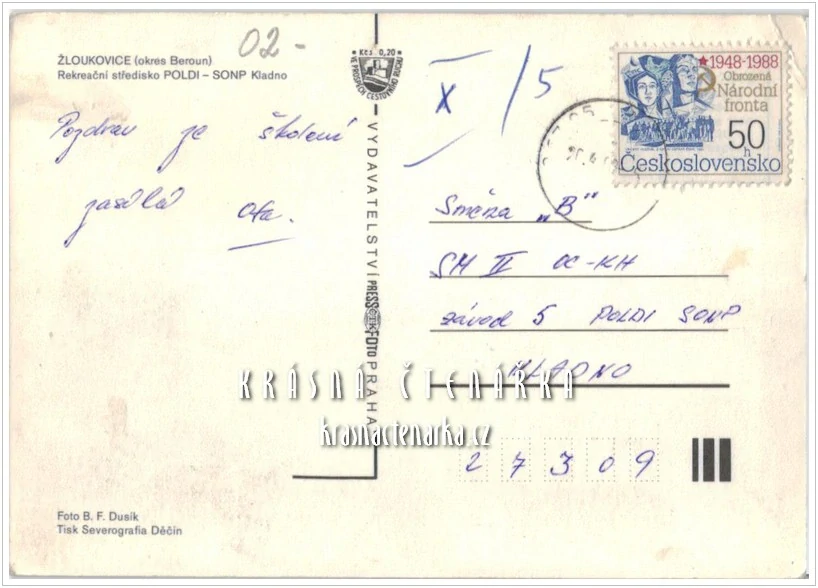 02-
ŽLOUKOVICE (okres Beroun)
Rekreační středisko POLDI – SONP Kladno
Pozdrav ze školení
zasílá Ota.
Foto B. F. Dusík
Tisk Severografia Děčín
Kčs 0,20
VE PROSPĚCH CESTOVNÍHO RUCHU
VYDAVATELSTVÍ PRESSFOTO PRAHA
ČTK
X /5
★1948-1988
Obrozená
Národní
fronta
50 h
Československo
Směna „B"
SM II OC-KH
závod 5 POLDI SONP
KLADNO
27309
KRÁSNÁ ČTENÁRKA
krasnactenarka.cz